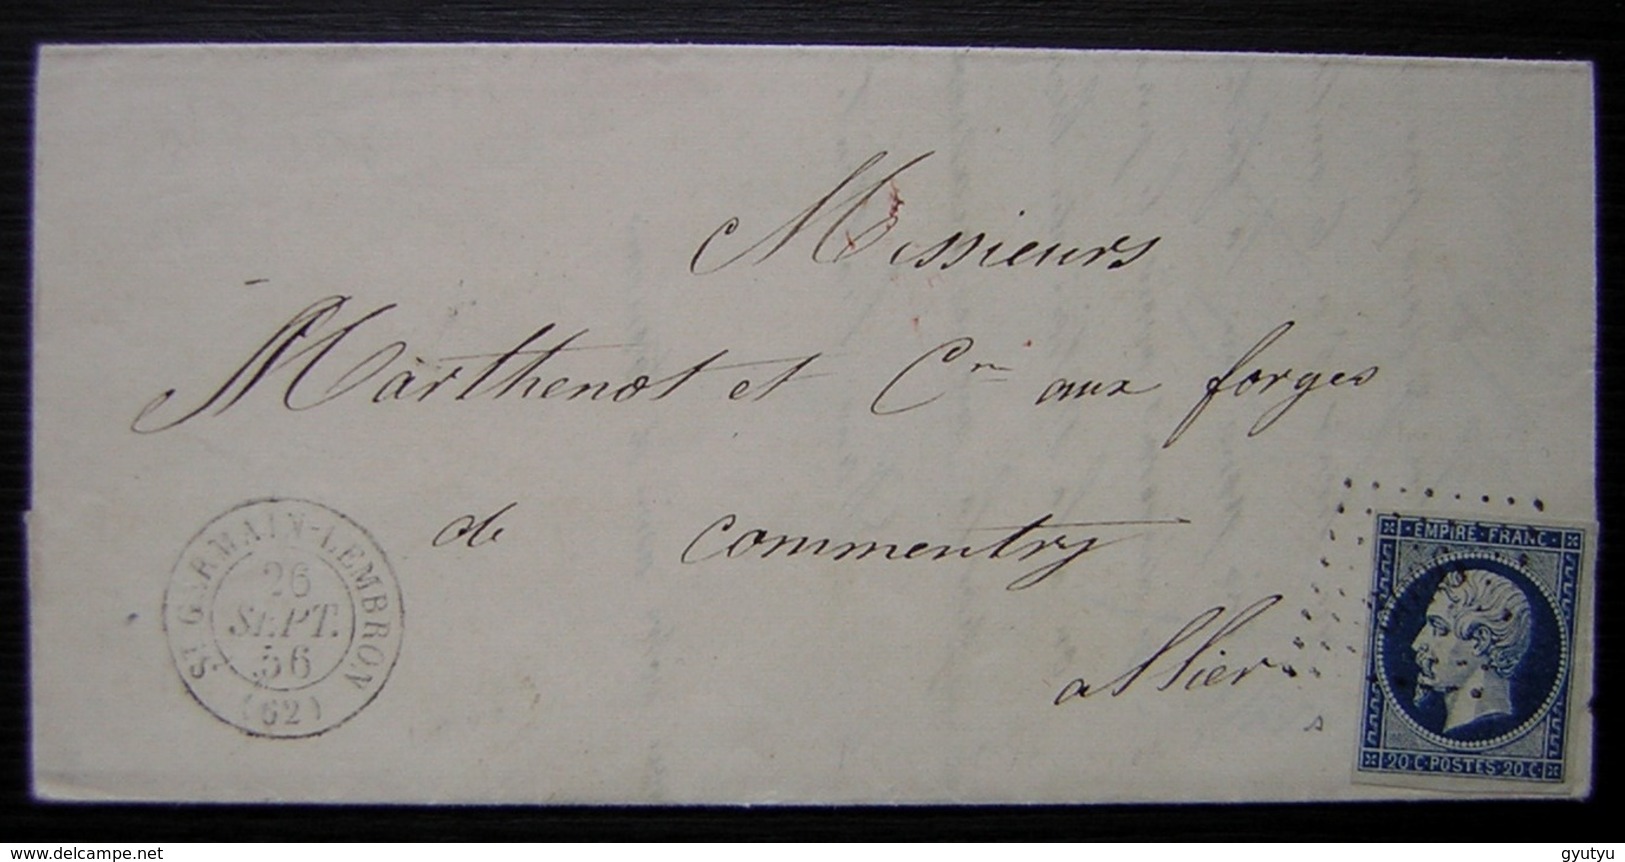 Messieurs
Marthenot et Cie aux forges
de commentry
allier
ST GERMAIN-LEMBRON
26
SEPT.
56
(62)
EMPIRE FRANC
20 C POSTES 20 C
www.delcampe.net
gyutyu